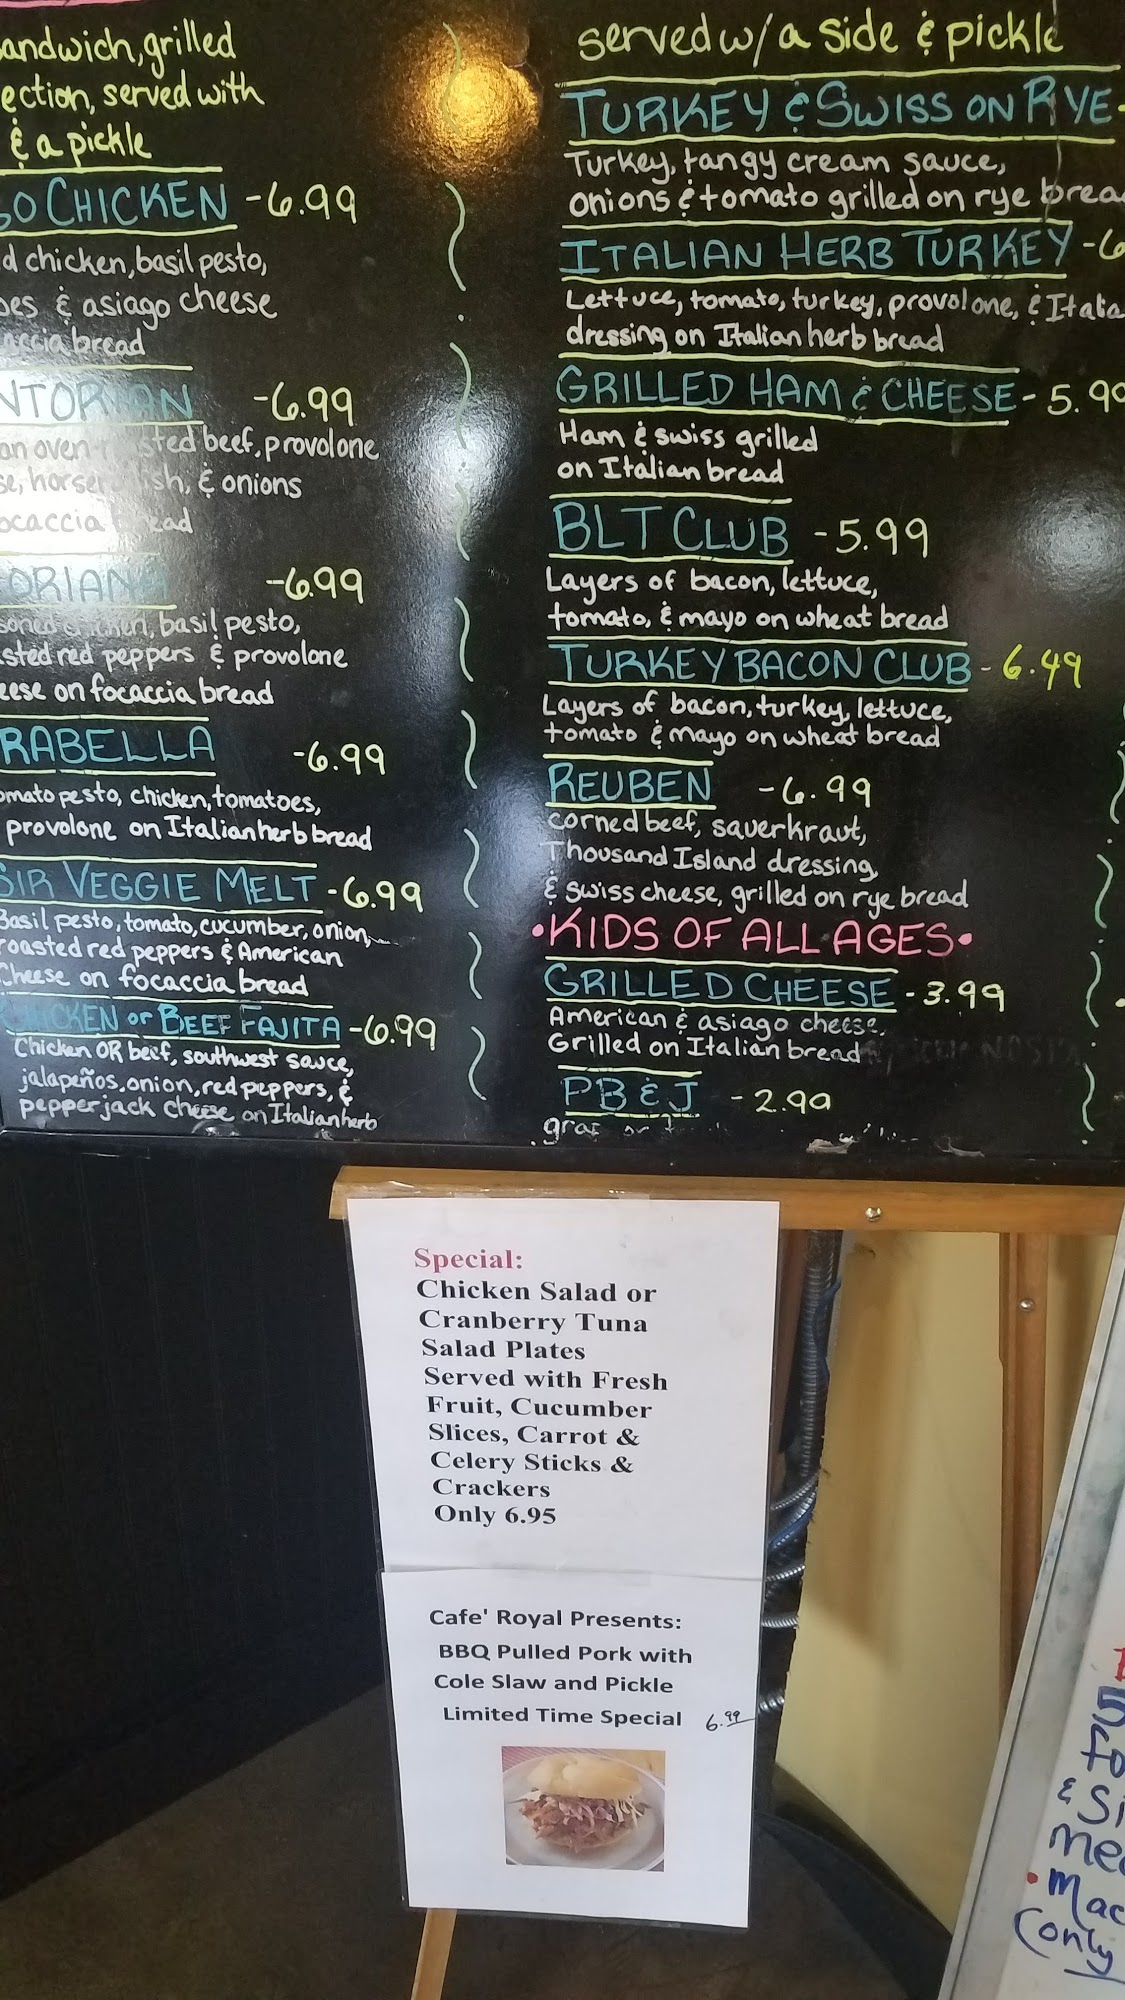 sandwich, grilled
ection, served with
& a pickle
GO CHICKEN - 6.99
d chicken, basil pesto,
oes & asiago cheese
accia bread
NTORIAN - 6.99
an oven roasted beef, provolone
se, horseradish, & onions
ocaccia bread
ORIANA - 6.99
soned chicken, basil pesto,
sted red peppers & provolone
eese on focaccia bread
RABELLA - 6.99
omato pesto, chicken, tomatoes,
provolone on Italian herb bread
SIR VEGGIE MELT - 6.99
Basil pesto, tomato, cucumber, onion,
roasted red peppers & American
Cheese on focaccia bread
CHICKEN or BEEF FAJITA - 6.99
Chicken OR beef, southwest sauce,
jalapeños, onion, red peppers, &
pepperjack cheese on Italian herb
served w/ a side & pickle
TURKEY & SWISS ON RYE -
Turkey, tangy cream sauce,
onions & tomato grilled on rye brea
ITALIAN HERB TURKEY - 6
Lettuce, tomato, turkey, provolone, & Italia
dressing on Italian herb bread
GRILLED HAM & CHEESE - 5.99
Ham & swiss grilled
on Italian bread
BLT CLUB - 5.99
Layers of bacon, lettuce,
tomato, & mayo on wheat bread
TURKEY BACON CLUB - 6.49
Layers of bacon, turkey, lettuce,
tomato & mayo on wheat bread
REUBEN - 6.99
corned beef, sauerkraut,
Thousand Island dressing,
& swiss cheese, grilled on rye bread
• KIDS OF ALL AGES •
GRILLED CHEESE - 3.99
American & asiago cheese,
Grilled on Italian bread
PB & J - 2.99
Special:
Chicken Salad or
Cranberry Tuna
Salad Plates
Served with Fresh
Fruit, Cucumber
Slices, Carrot &
Celery Sticks &
Crackers
Only 6.95
Cafe' Royal Presents:
BBQ Pulled Pork with
Cole Slaw and Pickle
Limited Time Special 6.99
5
Fo
& Si
Mea
• Mac
(only